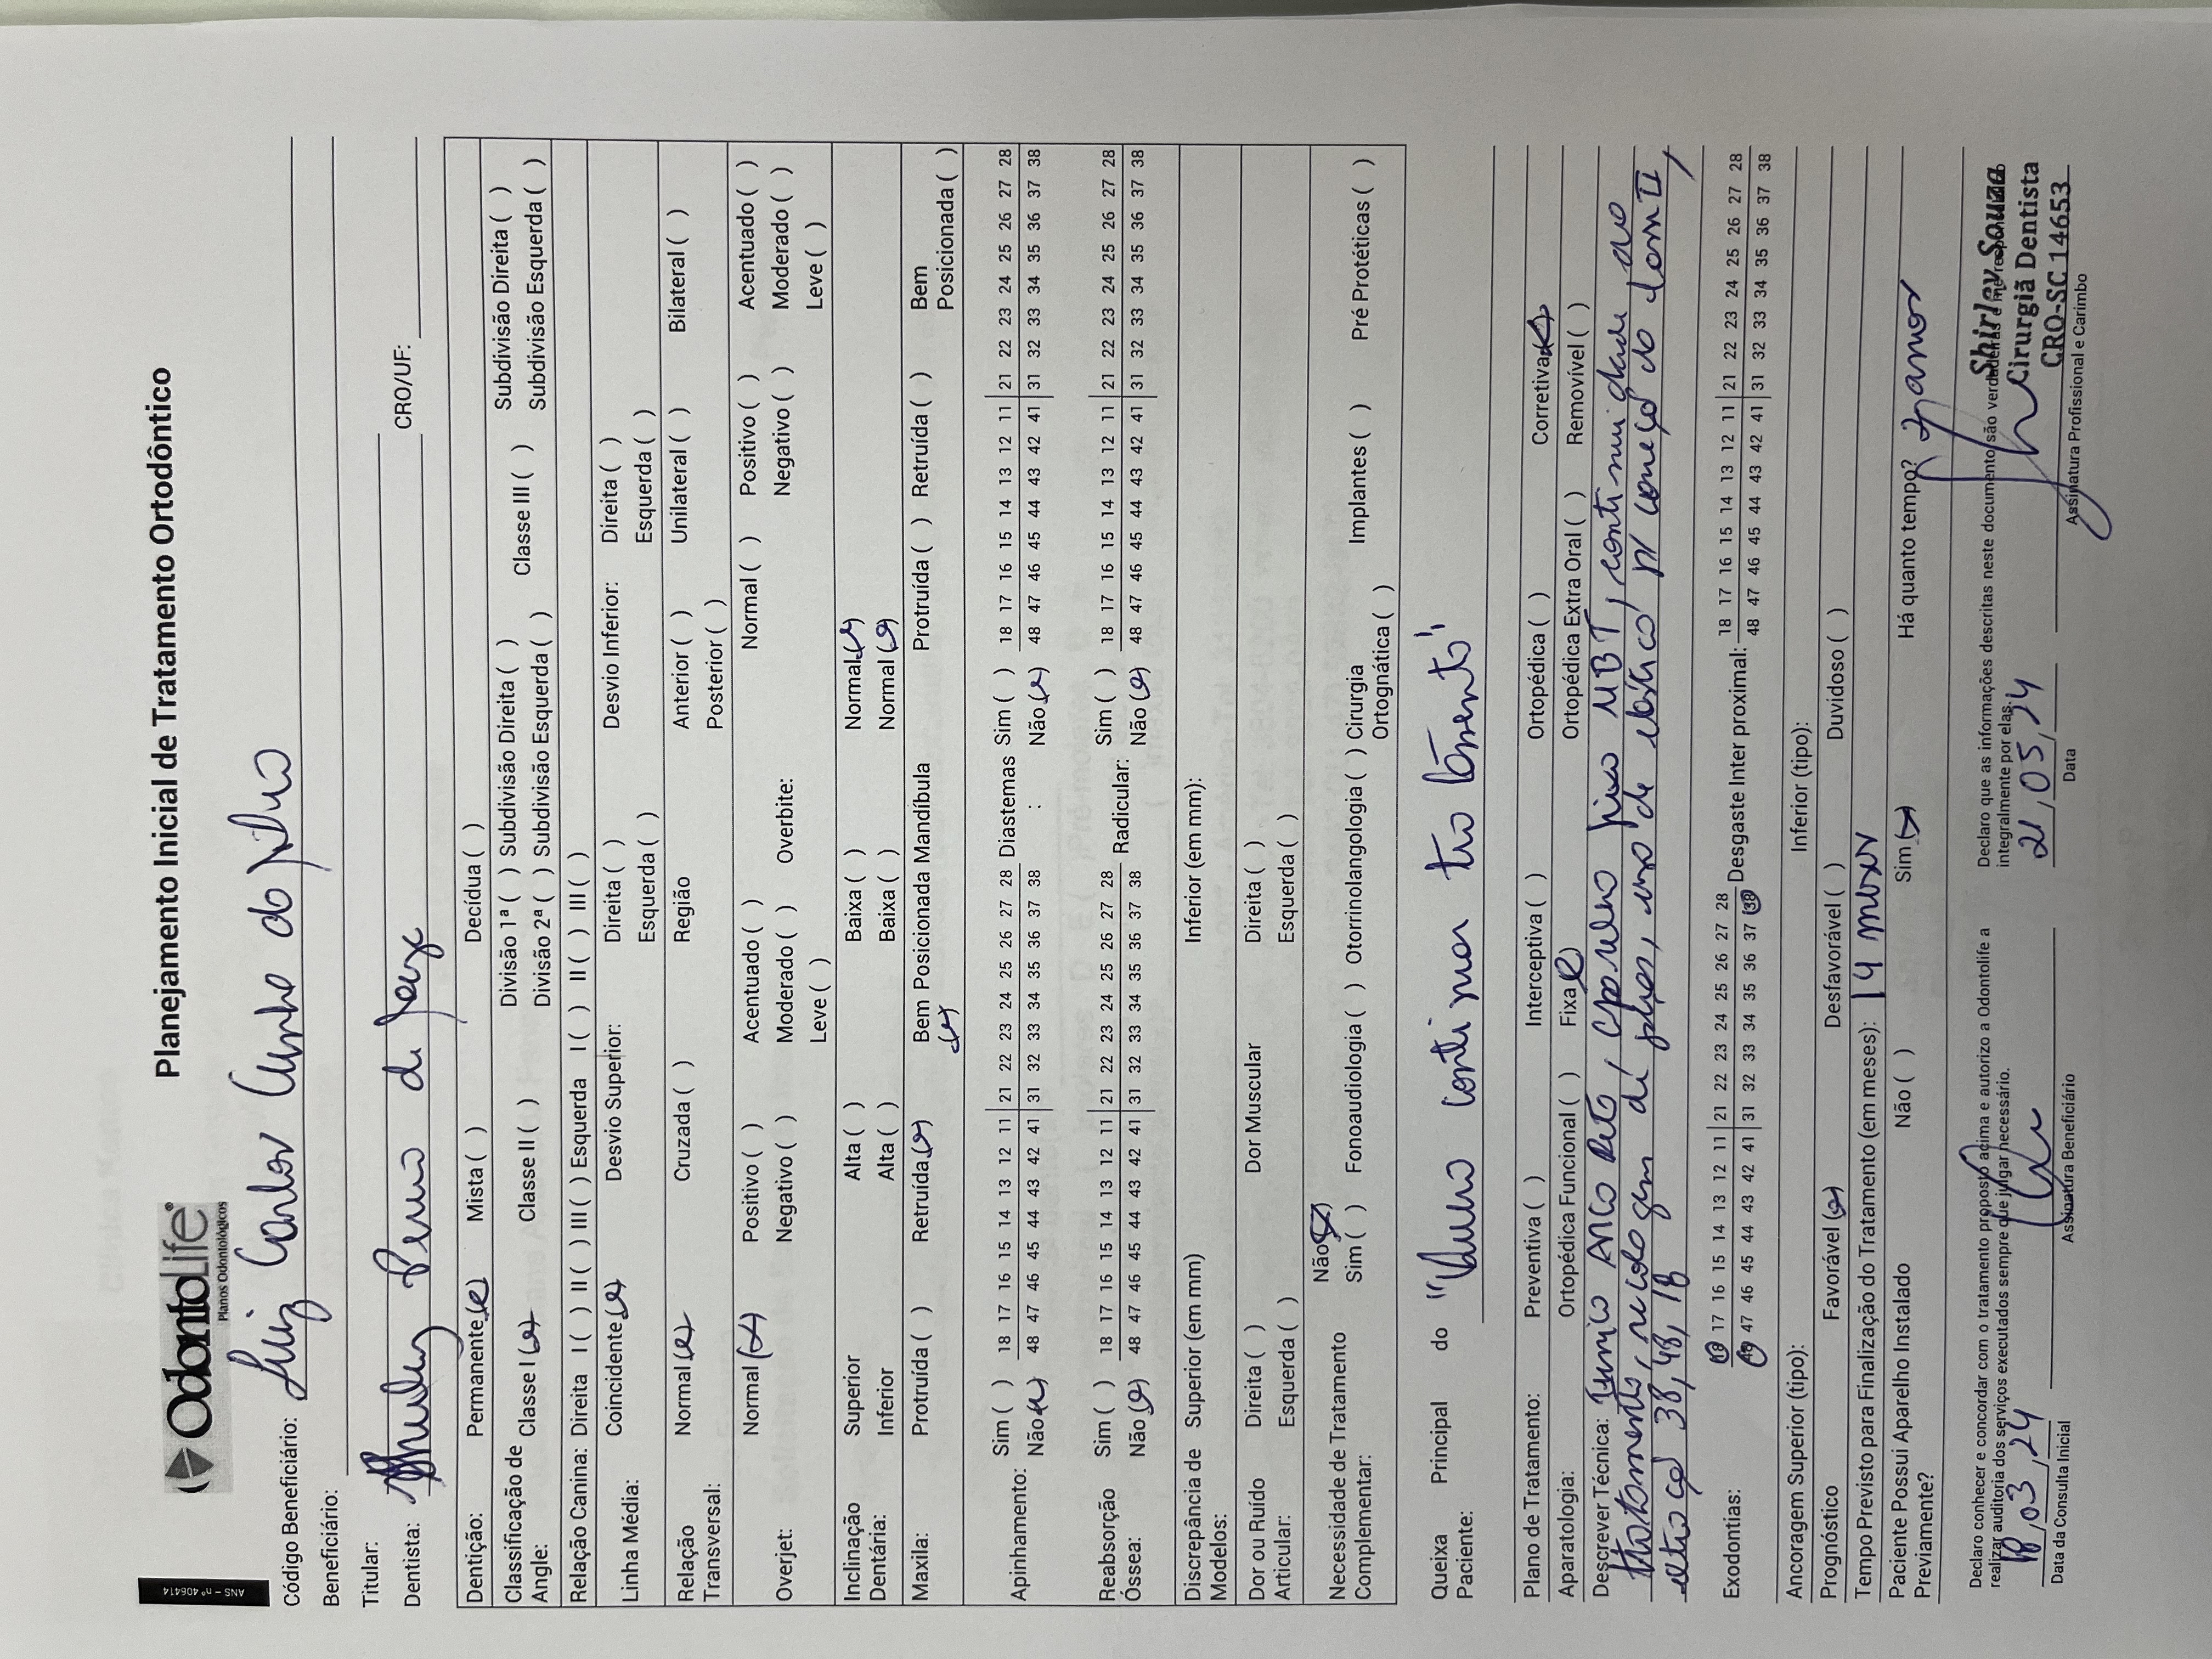 ANS – nº 406414
OdontoLife®
Planos Odontológicos
Planejamento Inicial de Tratamento Ortodôntico
Código Beneficiário: Luiz Carlos Cunha da Silva
Beneficiário:
Titular:
Dentista: Shirley de Souza CRO/UF:
Dentição: Permanente (x) Mista ( ) Decídua ( )
Classificação de Angle: Classe I (x) Classe II ( ) Divisão 1ª ( ) Subdivisão Direita ( ) Classe III ( ) Subdivisão Direita ( )
Divisão 2ª ( ) Subdivisão Esquerda ( ) Subdivisão Esquerda ( )
Relação Canina: Direita I ( ) II ( ) III ( ) Esquerda I ( ) II ( ) III ( )
Linha Média: Coincidente (x) Desvio Superior: Direita ( ) Desvio Inferior: Direita ( )
Esquerda ( ) Esquerda ( )
Relação Transversal: Normal (x) Cruzada ( ) Região Anterior ( ) Unilateral ( ) Bilateral ( )
Posterior ( )
Overjet: Normal (x) Positivo ( ) Acentuado ( ) Overbite: Normal ( ) Positivo ( ) Acentuado ( )
Negativo ( ) Moderado ( ) Negativo ( ) Moderado ( )
Leve ( ) Leve ( )
Inclinação Dentária: Superior Alta ( ) Baixa ( ) Normal (x)
Inferior Alta ( ) Baixa ( ) Normal (x)
Maxila: Protruída ( ) Retruída (x) Bem Posicionada (x) Mandíbula Protruída ( ) Retruída ( ) Bem Posicionada ( )
Apinhamento: Sim ( ) 18 17 16 15 14 13 12 11 | 21 22 23 24 25 26 27 28 Diastemas : Sim ( ) 18 17 16 15 14 13 12 11 | 21 22 23 24 25 26 27 28
Não (x) 48 47 46 45 44 43 42 41 | 31 32 33 34 35 36 37 38 Não (x) 48 47 46 45 44 43 42 41 | 31 32 33 34 35 36 37 38
Reabsorção Óssea: Sim ( ) 18 17 16 15 14 13 12 11 | 21 22 23 24 25 26 27 28 Radicular: Sim ( ) 18 17 16 15 14 13 12 11 | 21 22 23 24 25 26 27 28
Não (x) 48 47 46 45 44 43 42 41 | 31 32 33 34 35 36 37 38 Não (x) 48 47 46 45 44 43 42 41 | 31 32 33 34 35 36 37 38
Discrepância de Modelos: Superior (em mm) Inferior (em mm):
Dor ou Ruído Articular: Direita ( ) Dor Muscular Direita ( )
Esquerda ( ) Esquerda ( )
Necessidade de Tratamento Complementar: Não (x)
Sim ( ) Fonoaudiologia ( ) Otorrinolangologia ( ) Cirurgia Ortognática ( ) Implantes ( ) Pré Protéticas ( )
Queixa Principal do Paciente: "Quero continuar tratamento"
Plano de Tratamento: Preventiva ( ) Interceptiva ( ) Ortopédica ( ) Corretiva (x)
Aparatologia: Ortopédica Funcional ( ) Fixa (x) Ortopédica Extra Oral ( ) Removível ( )
Descrever Técnica: Técnica Arco Reto, aparelho fixo MBT, continuidade ao
tratamento, recolagem de peças, uso de elástico p/ correção da Class II,
38, 48, 18
Exodontias: 18 17 16 15 14 13 12 11 | 21 22 23 24 25 26 27 28 Desgaste Inter proximal: 18 17 16 15 14 13 12 11 | 21 22 23 24 25 26 27 28
48 47 46 45 44 43 42 41 | 31 32 33 34 35 36 37 38 48 47 46 45 44 43 42 41 | 31 32 33 34 35 36 37 38
Ancoragem Superior (tipo): Inferior (tipo):
Prognóstico Favorável (x) Desfavorável ( ) Duvidoso ( )
Tempo Previsto para Finalização do Tratamento (em meses): 14 meses
Paciente Possui Aparelho Instalado Previamente? Não ( ) Sim (x) Há quanto tempo? 7 anos
Declaro conhecer e concordar com o tratamento proposto acima e autorizo a Odontolife a
realizar auditoria dos serviços executados sempre que julgar necessário.
Declaro que as informações descritas neste documento são verdadeiras e me responsabilizo
integralmente por elas.
18,03,24
Data da Consulta Inicial
Assinatura Beneficiário
21,05,24
Data
Shirley Souza
Cirurgiã Dentista
CRO-SC 14653
Assinatura Profissional e Carimbo